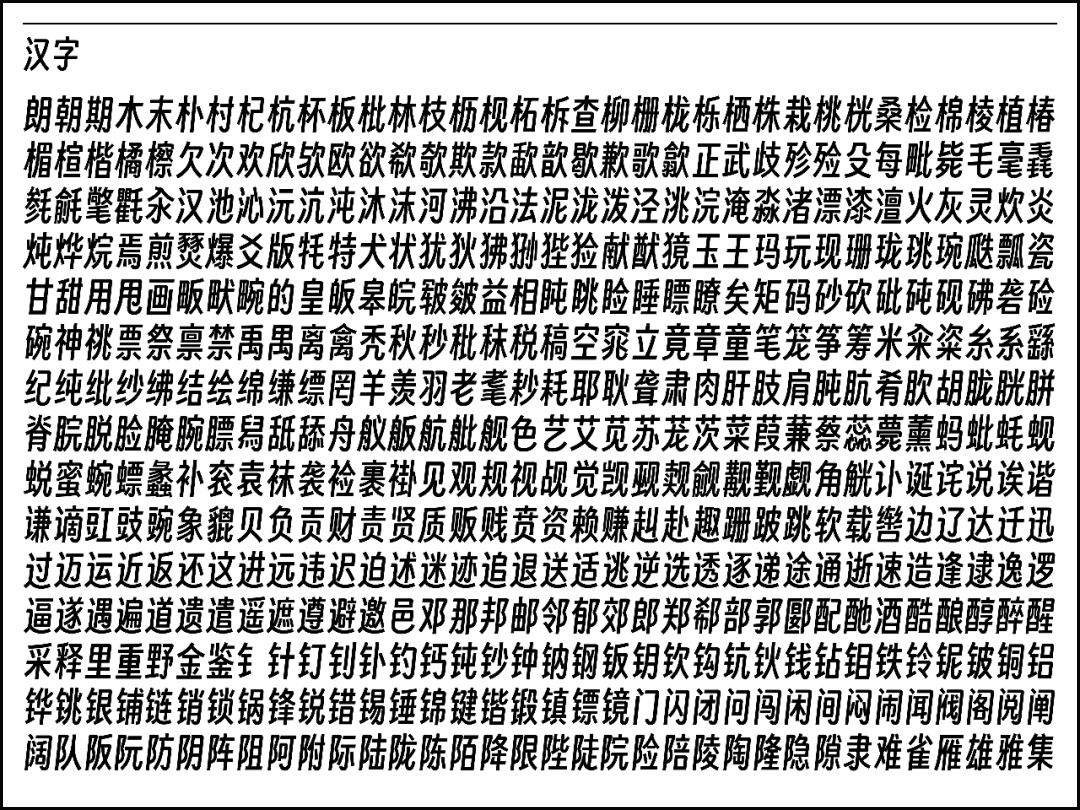 汉字
朗朝期木末朴村杞杭杯板枇林枝枥枧柘柝查柳栅栊栎栖株栽桃桄桑检棉棱植椿
楣楦楷橘檫欠次欢欣欤欧欲欷欹欺款歃歆歇歉歌歙正武歧殄殓殳每毗毙毛毫毳
毵毹氅氍汆汉池沁沅沆沌沐沫河沸沿法泥泷泼泾洮浣淹淼渚漂漆澶火灰灵炊炎
炖烨烷焉煎燹爆爻版牦特犬状犹狄狒狲狴猃献猷獍玉王玛玩现珊珑珧琬瓞瓢瓷
甘甜用甩画畈畎畹的皇皈皋皖皲皴益相盹眺睑睡瞟瞭矣矩码砂砍砒砘砚砩砻硷
碗神祧票祭禀禁禹禺离禽秃秋秒秕秣税稿空窕立竟章童笔笼筝筹米籴粢糸系繇
纪纯纰纱绋结绘绵缣缥罔羊羡羽老耄耖耗耶耿聋肃肉肝肢肩肫肮肴肷胡胧胱胼
脊脘脱脸腌腕膘舄舐舔舟舣舨航舭舰色艺艾苋苏茏茨菜葭蒹蔡蕊薨薰蚂蚍蚝蚬
蜕蜜蜿螵蠡补衮袁袜袭裣裹褂见观规视觇觉觊觋觌觎觏觐觑角觥讣诞诧说诶谐
谦谪豇豉豌象貔贝负贡财责贤质贩贱贲资赖赚赳赴趣跚跛跳软载辔边辽达迁迅
过迈运近返还这进远违迟迫述迷迹追退送适逃逆选透逐递途通逝速造逢逮逸逻
逼遂遇遍道遗遣遥遮遵避邀邑邓那邦邮邻郁郊郎郑郗部郭郾配酏酒酷酿醇醉醒
采释里重野金鉴钅针钉钊钋钓钙钝钞钟钠钢钣钥钦钩钪钬钱钻钼铁铃铌铍铜铝
铧铫银铺链销锁锅锋锐错锡锤锦键锴锻镇镖镜门闪闭问闯闲间闷闹闻阀阁阅阐
阔队阪阮防阴阵阻阿附际陆陇陈陌降限陛陡院险陪陵陶隆隐隙隶难雀雁雄雅集